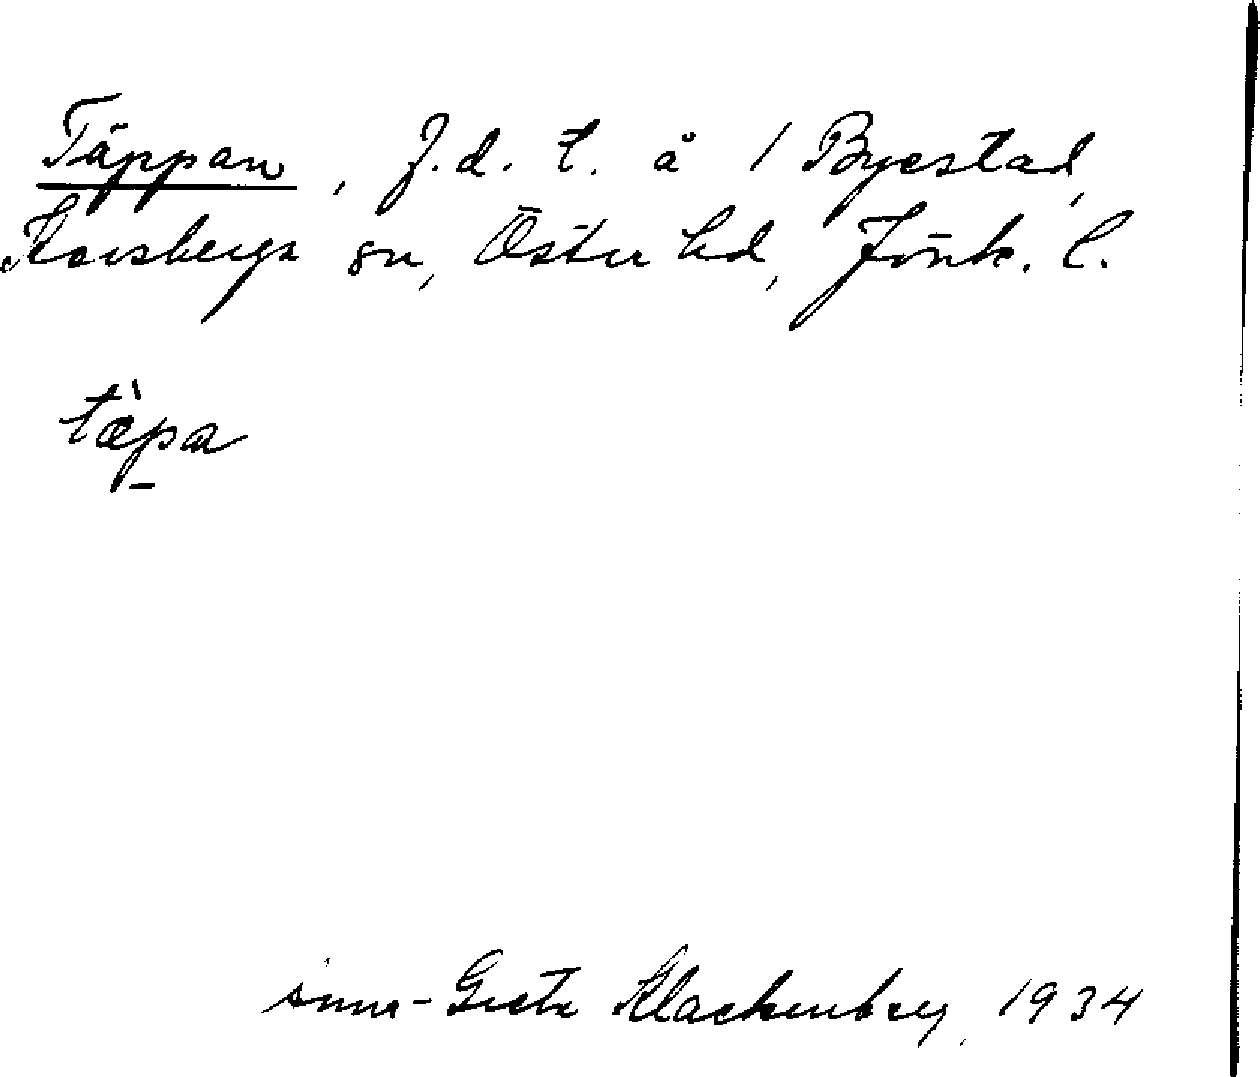 Täppan, J.d. t. å 1 Byestad,
Korsberga sn, Östra hd, Jönk. l.
tæ̀pa
Anna-Greta Klackenberg, 1934